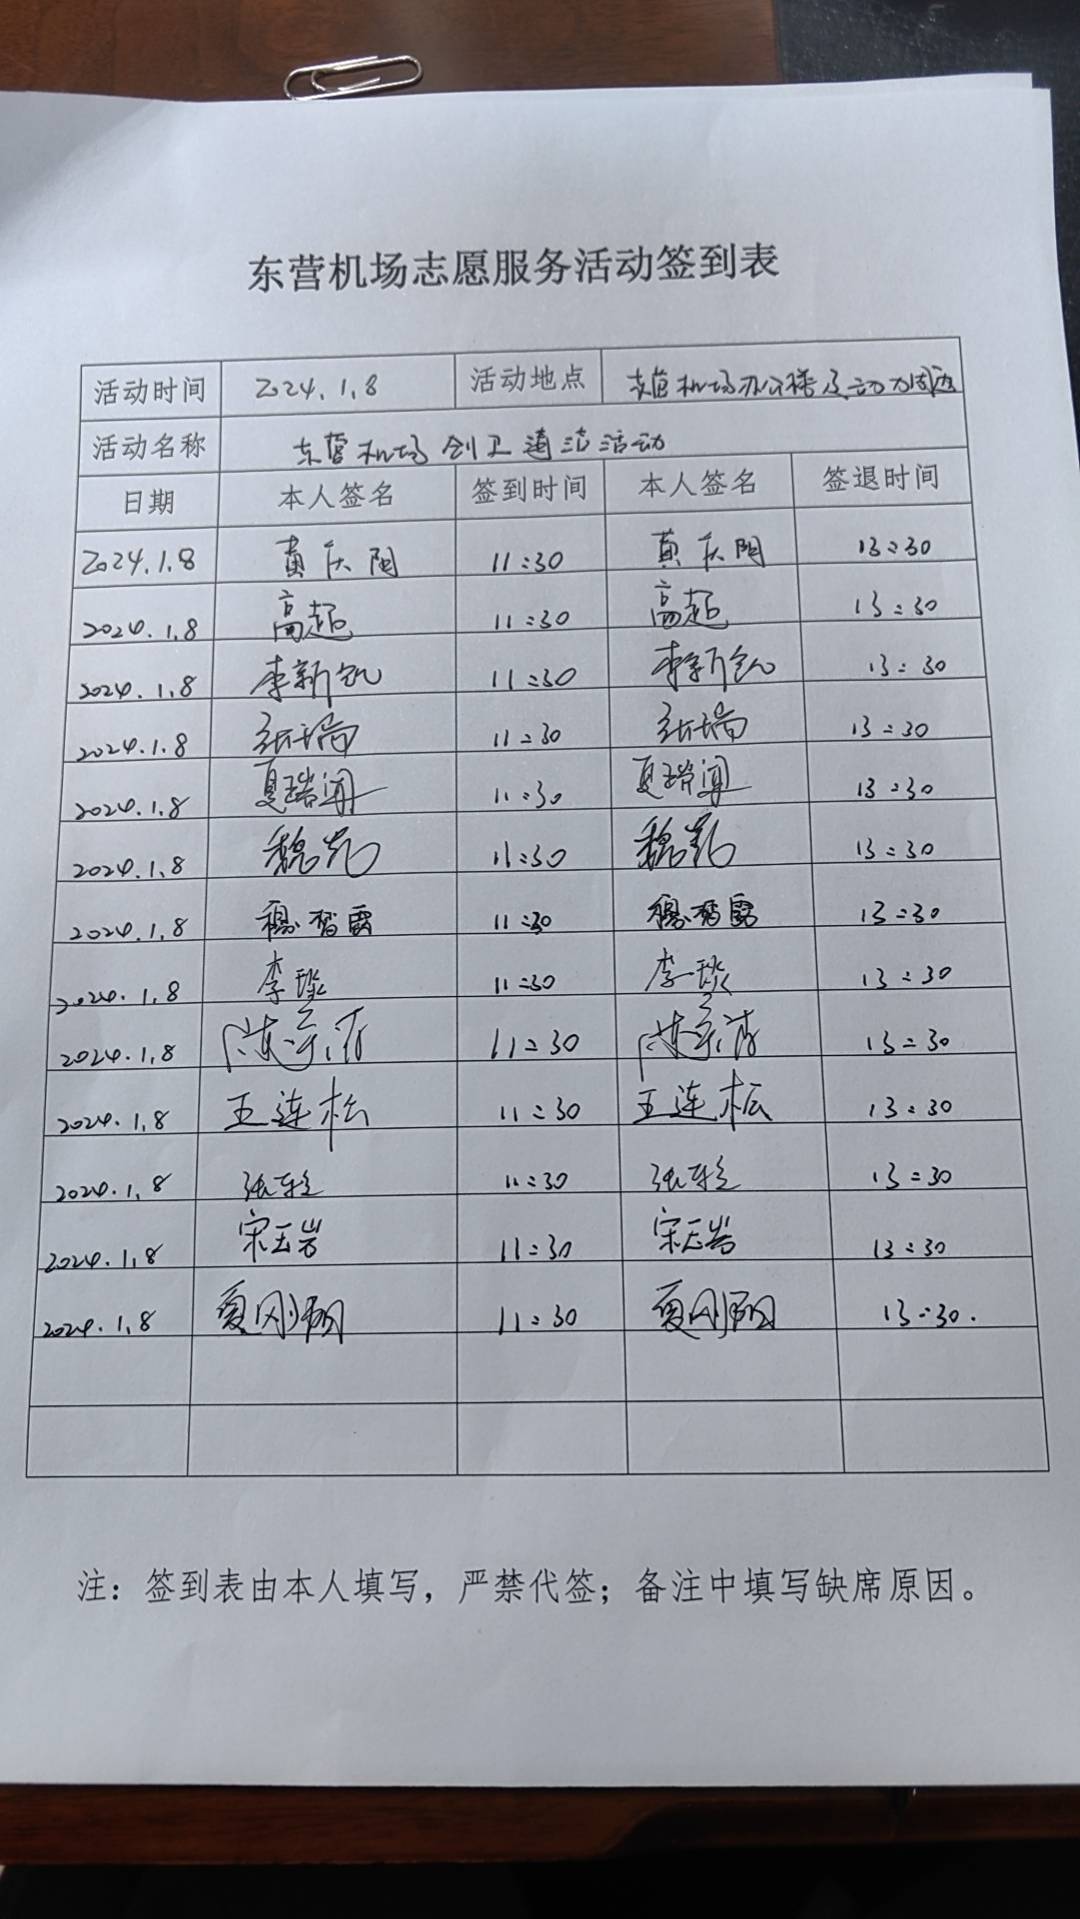 东营机场志愿服务活动签到表
活动时间 2024.1.8 活动地点 东营机场办公楼及动力周边
活动名称 东营机场创卫清洁活动
日期 本人签名 签到时间 本人签名 签退时间
2024.1.8 黄庆阳 11:30 黄庆阳 13:30
2024.1.8 高超 11:30 高超 13:30
2024.1.8 李新 11:30 李新 13:30
2024.1.8 11:30 13:30
2024.1.8 夏瑞闻 11:30 夏瑞闻 13:30
2024.1.8 魏 11:30 魏 13:30
2024.1.8 穆智露 11:30 穆智露 13:30
2024.1.8 李琰 11:30 李琰 13:30
2024.1.8 陈 11:30 陈 13:30
2024.1.8 王连松 11:30 王连松 13:30
2024.1.8 张 11:30 张 13:30
2024.1.8 宋玉岩 11:30 宋玉岩 13:30
2024.1.8 夏刚 11:30 夏刚 13:30.
注：签到表由本人填写，严禁代签；备注中填写缺席原因。